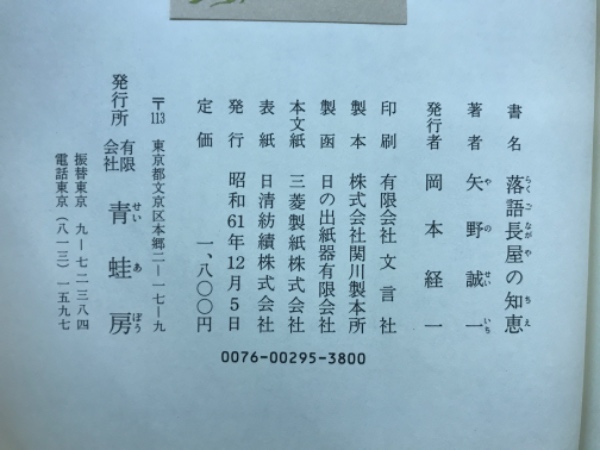 書名 落語長屋の知恵
らくごながや ちえ
著者 矢野誠一
やのせいいち
発行者 岡本経一
印刷 有限会社文言社
製本 株式会社関川製本所
製函 日の出紙器有限会社
本文紙 三菱製紙株式会社
表紙 日清紡績株式会社
発行 昭和61年12月5日
定価 一、八〇〇円
〒113 東京都文京区本郷二ー一七ー九
発行所 有限会社 青蛙房
せいあぼう
振替東京 九ー七二三八四
電話東京(八一三)一五九七
0076-00295-3800